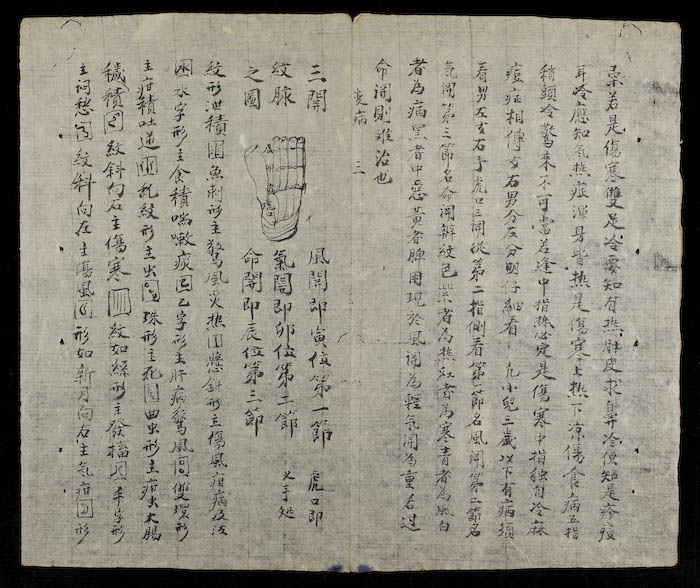 彔若是傷寒雙足冷要知有熱肚皮求鼻冷便知是疹痘
耳冷應知氣熱症渾身皆熱是傷寒上熱下凉傷食病五指
稍頭冷驚來不可當若逢中指熱必定是傷寒中指独自冷麻
痘症相傳女右男分左分明仔細看 凡小兒三歲以下有病須
看男左女右手虎口三関從第二指側看第一節名風関第二節名
氣関第三節名命関辨紋色紫者為热紅者為寒青者為風白
者為病黑者中惡黃者脾困現於風関為輕氣関為重若过
命関則难治也
变病 三
三関 風関即寅位第一節 虎口即
紋脉 氣関即卯位第二節 乂手処
之圖 命関即辰位第三節
紋形泄積 魚刺形主驚風炎热 懸針形主傷風疳病及泫
困 水字形主食積喘嗽痰 乙字形主肝病驚風 雙環形
主疳積吐逆 乱紋形主虫 珠形主死 曲虫形主疳虫大腸
穢積 紋斜向右主傷寒 紋如線形主發搐 手字形
主 愁 紋斜向左主傷風 形如新月向右主氣疳 形